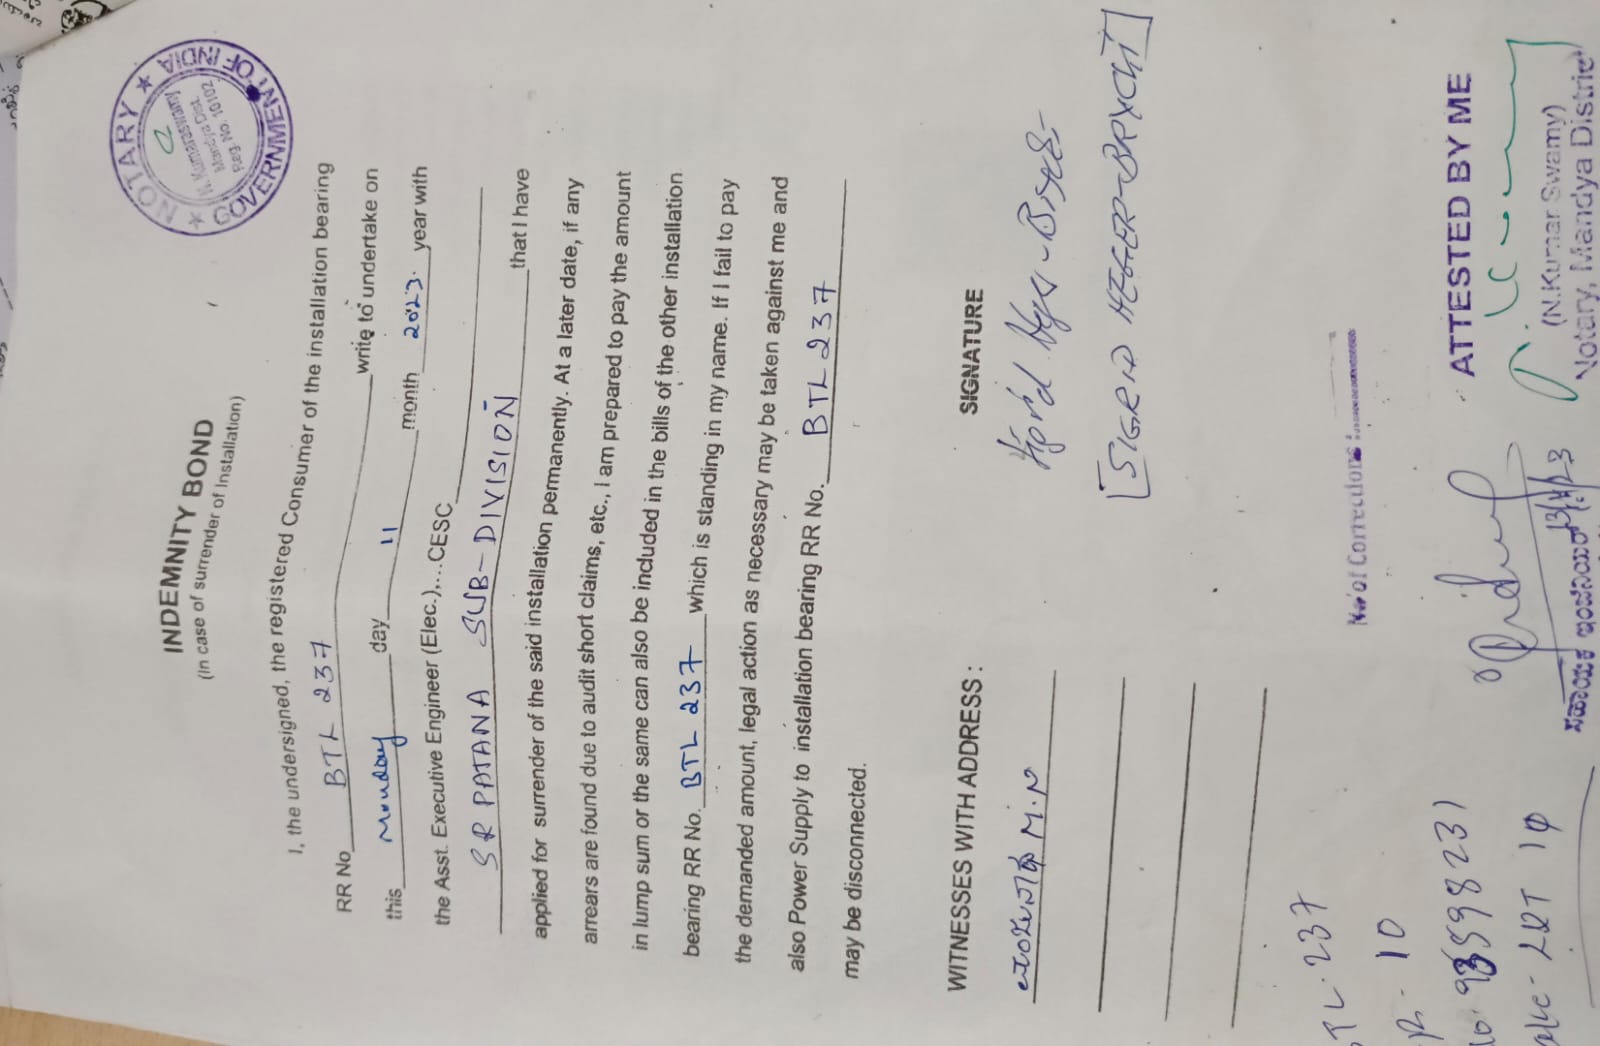 NOTARY ★ GOVERNMENT OF INDIA ★
N. Kumaraswamy
Mandya Dist.
Reg. No. 10102
INDEMNITY BOND
(In case of surrender of Installation)
I, the undersigned, the registered Consumer of the installation bearing
RR No BTL 237 write to undertake on
this Monday day 11 month 2023. year with
the Asst. Executive Engineer (Elec.),...CESC
SR PATANA SUB-DIVISION that I have
applied for surrender of the said installation permanently. At a later date, if any
arrears are found due to audit short claims, etc., I am prepared to pay the amount
in lump sum or the same can also be included in the bills of the other installation
bearing RR No. BTL 237 which is standing in my name. If I fail to pay
the demanded amount, legal action as necessary may be taken against me and
also Power Supply to installation bearing RR No. BTL 237
may be disconnected.
WITNESSES WITH ADDRESS :
SIGNATURE
No of Corrections :
TL. 237
10
ATTESTED BY ME
(N.Kumar Swamy)
Notary, Mandya District
ಸಹಾಯಕ ಇಂಜಿನಿಯರ್